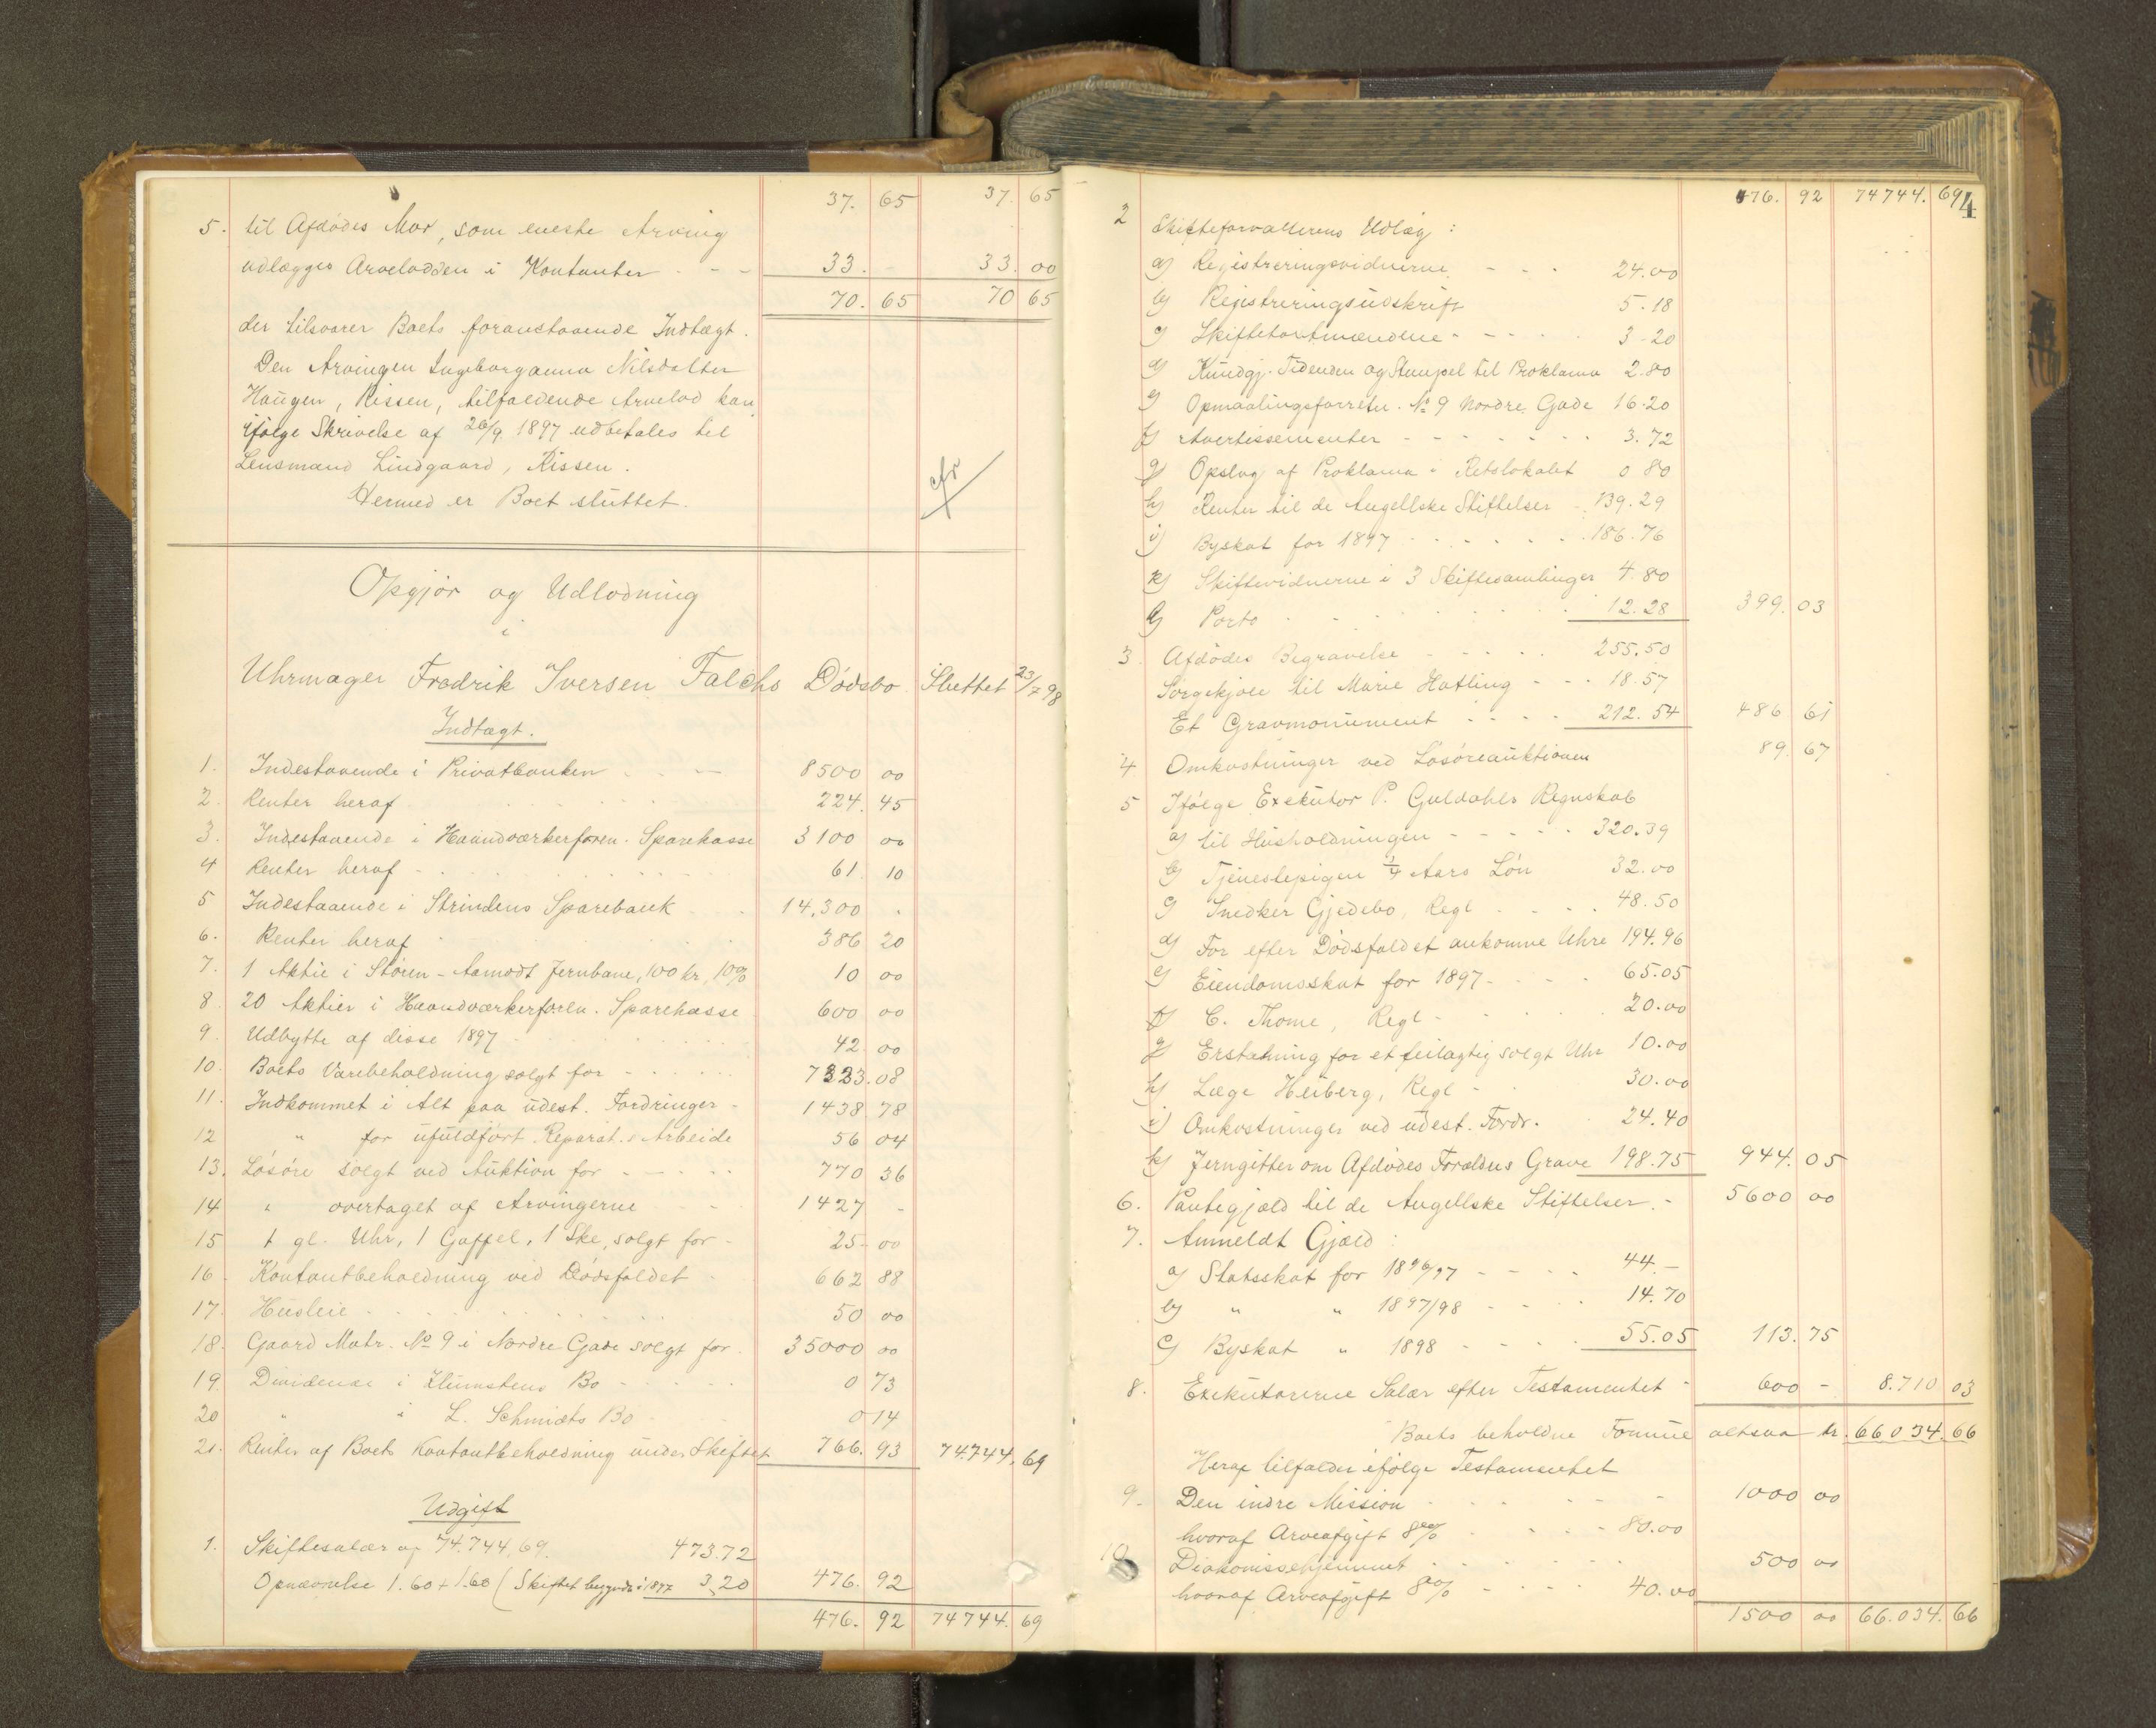 37. 65 37. 65
5. til Afdødes Mor, som eneste Arving
udlægges Arvelodden i Kontanter - - 33. - 33. 00
70. 65 70 65
der tilsvarer Boets foranstaaende Indtægt.
Den Arvingen Ingeborganna Nilsdatter
Haugen, Rissen, tilfaldende Arvelod kan
ifølge Skrivelse af 26/9 1897 udbetales til
Lensmand Lindgaard, Rissen.
Hermed er Boet sluttet.
cfr
Opgjør og Udlodning
i
Uhrmager Fredrik Iversen Falchs Dødsbo. Sluttet 23/7 98
Indtægt.
1. Indestaaende i Privatbanken - - 8500 00
2. Renter heraf 224. 45
3. Indestaaende i Haandværkerforen. Sparekasse 3100 00
4 Renter heraf - 61. 10
5 Indestaaende i Strindens Sparebank 14.300 -
6. Renter heraf 386 20
7. 1 Aktie i Støren-Aamodt Jernbane, 100 kr, 10% 10 00
8. 20 Aktier i Haandværkerforen. Sparekasse 600 00
9. Udbytte af disse 1897 42. 00
10. Boets Varebeholdning solgt for - 7323.08
11. Indkommet i Alt paa udest. Fordringer - 1438 78
12 " for ufuldført Reparat.s Arbeide 56 04
13. Løsøre solgt ved Auktion for - 770 36
14 " overtaget af Arvingerne 1427 -
15 1 gl. Uhr, 1 Gaffel, 1 Ske, solgt for - 25- 00
16 Kontantbeholdning ved Dødsfaldet 662 88
17. Husleie 50 00
18. Gaard Matr. No 9 i Nordre Gade solgt for 35000 00
19. Dividende i Klumstens Bo - 0 73
20 " i L. Schmidts Bo 0 14
21. Renter af Boets Kontantbeholdning under Skiftet 766. 93 74.744, 69
Udgift
1. Skiftesalær af 74.744,69. 473.72
Opnævnelse 1.60 + 1.60 (Skiftet begyndt i 1897 3,20 476. 92
476. 92 74744. 69
476. 92 74744. 69 4
2 Skifteforvalterens Udlæg:
a) Registreringsvidnerne - - - 24.00
b) Registreringsudskrift 5.18
c) Skiftetaxtmændene - - - 3-20
d) Kundgj. Tidenden og Stempel til Proklama 2.80
e) Opmaalingsforretn. No 9 Nordre Gade 16.20
f) Avertissementer - - - 3.72
g) Opslag af Proklama i Retslokalet 0 80
h) Renter til de Angellske Stiftelser - 139.29
i) Byskat for 1897 186.76
k) Skiftevidnerne i 3 Skiftesamlinger 4.80
l) Porto 12.28 399. 03
3. Afdødes Begravelse - - 255.50
Sørgekjole til Marie Hatling - - - 18.57
Et Gravmonument - - 212.54 486 61
4 Omkostninger ved Løsøreauktionen 89. 67
5 Ifølge Exekutor P. Guldahls Regnskab
a) til Husholdningen - - - 320.39
b) Tjenestepigen 1/4 Aars Løn 32.00
c) Snedker Gjedebo, Regl 48.50
d) For efter Dødsfaldet ankomne Uhre 194.96
e) Eiendomsskat for 1897 - 65.05
f) C. Thome, Regl - 20.00
g) Erstatning for et feilagtig solgt Uhr 10.00
h) Læge Heiberg, Regl - 30.00
i) Omkostninger ved udest. Fordr. 24.40
k) Jerngitter om Afdødes Forældres Grave 198.75 944. 05
6. Pantegjæld til de Angellske Stiftelser - 5600 00
7. Anmeldt Gjæld:
a) Statsskat for 1896/97 - - - 44.-
b) " " 1897/98 - - 14.70
c) Byskat " 1898 - - 55.05 113. 75
8. Exekutorerne Salær efter Testamentet - 600 - 8.710 03
Boets beholdne Formue altsaa kr. 66034. 66
Heraf tilfalder ifølge Testamentet
9. Den indre Mission - 1000 00
hvoraf Arveafgift 8% - 80.00
10 Diakonissehjemmet 500 00
hvoraf Arveafgift 8% - - 40.00
1500 00 66.034. 66